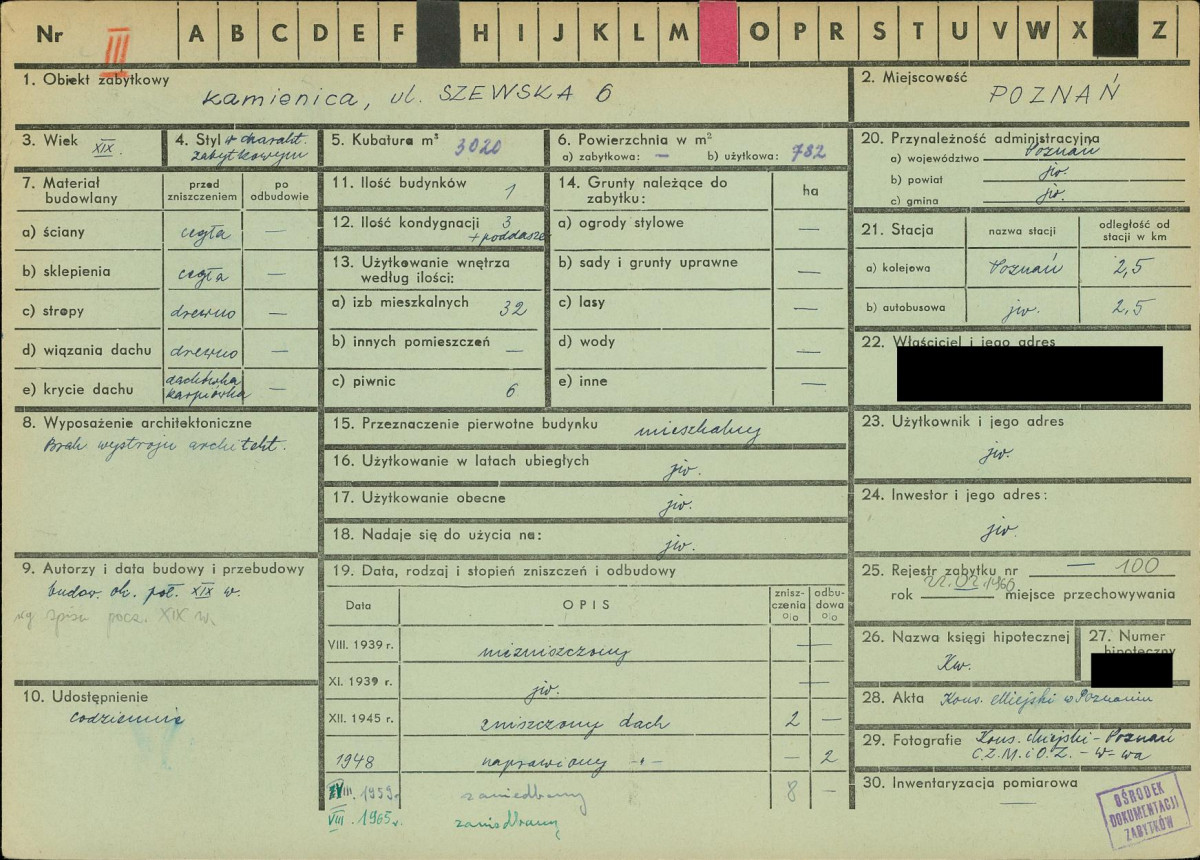 Nr III A B C D E F H I J K L M O P R S T U V W X Z
1. Obiekt zabytkowy
kamienica, ul. SZEWSKA 6
2. Miejscowość
POZNAŃ
3. Wiek
XIX.
4. Styl w charakt.
zabytkowym
5. Kubatura m³ 3020
6. Powierzchnia w m²
a) zabytkowa: — b) użytkowa: 782
7. Materiał
budowlany
przed
zniszczeniem
po
odbudowie
a) ściany cegła —
b) sklepienia cegła —
c) stropy drewno —
d) wiązania dachu drewno —
e) krycie dachu dachówka
karpiówka —
8. Wyposażenie architektoniczne
Brak wystroju architekt.
9. Autorzy i data budowy i przebudowy
budow. ok. poł. XIX w.
wg spisu pocz. XIX w.
10. Udostępnienie
codziennie
11. Ilość budynków 1
12. Ilość kondygnacji 3
+poddasze
13. Użytkowanie wnętrza
według ilości:
a) izb mieszkalnych 32
b) innych pomieszczeń —
c) piwnic 6
14. Grunty należące do
zabytku:
ha
a) ogrody stylowe —
b) sady i grunty uprawne —
c) lasy —
d) wody —
e) inne —
15. Przeznaczenie pierwotne budynku mieszkalny
16. Użytkowanie w latach ubiegłych jw.
17. Użytkowanie obecne jw.
18. Nadaje się do użycia na: jw.
19. Data, rodzaj i stopień zniszczeń i odbudowy
Data OPIS znisz-
czenia
%
odbu-
dowa
%
VIII. 1939 r. niezniszczony —
XI. 1939 r. jw. —
XII. 1945 r. zniszczony dach 2 —
1948 naprawiony -"- — 2
VIII. 1959r zaniedbany 8 —
VIII. 1965r. zaniedbany
20. Przynależność administracyjna
a) województwo Poznań
b) powiat jw.
c) gmina jw.
21. Stacja nazwa stacji odległość od
stacji w km
a) kolejowa Poznań 2,5
b) autobusowa jw. 2,5
22. Właściciel i jego adres
23. Użytkownik i jego adres
jw.
24. Inwestor i jego adres:
jw.
25. Rejestr zabytku nr — 100
rok 22.02.1966 miejsce przechowywania
26. Nazwa księgi hipotecznej
Kw.
27. Numer
hipoteczny
28. Akta Kons. Miejski w Poznaniu
29. Fotografie Kons. Miejski - Poznań
C.Z.M. i O.Z. - W-wa
30. Inwentaryzacja pomiarowa
—
OŚRODEK
DOKUMENTACJI
ZABYTKÓW